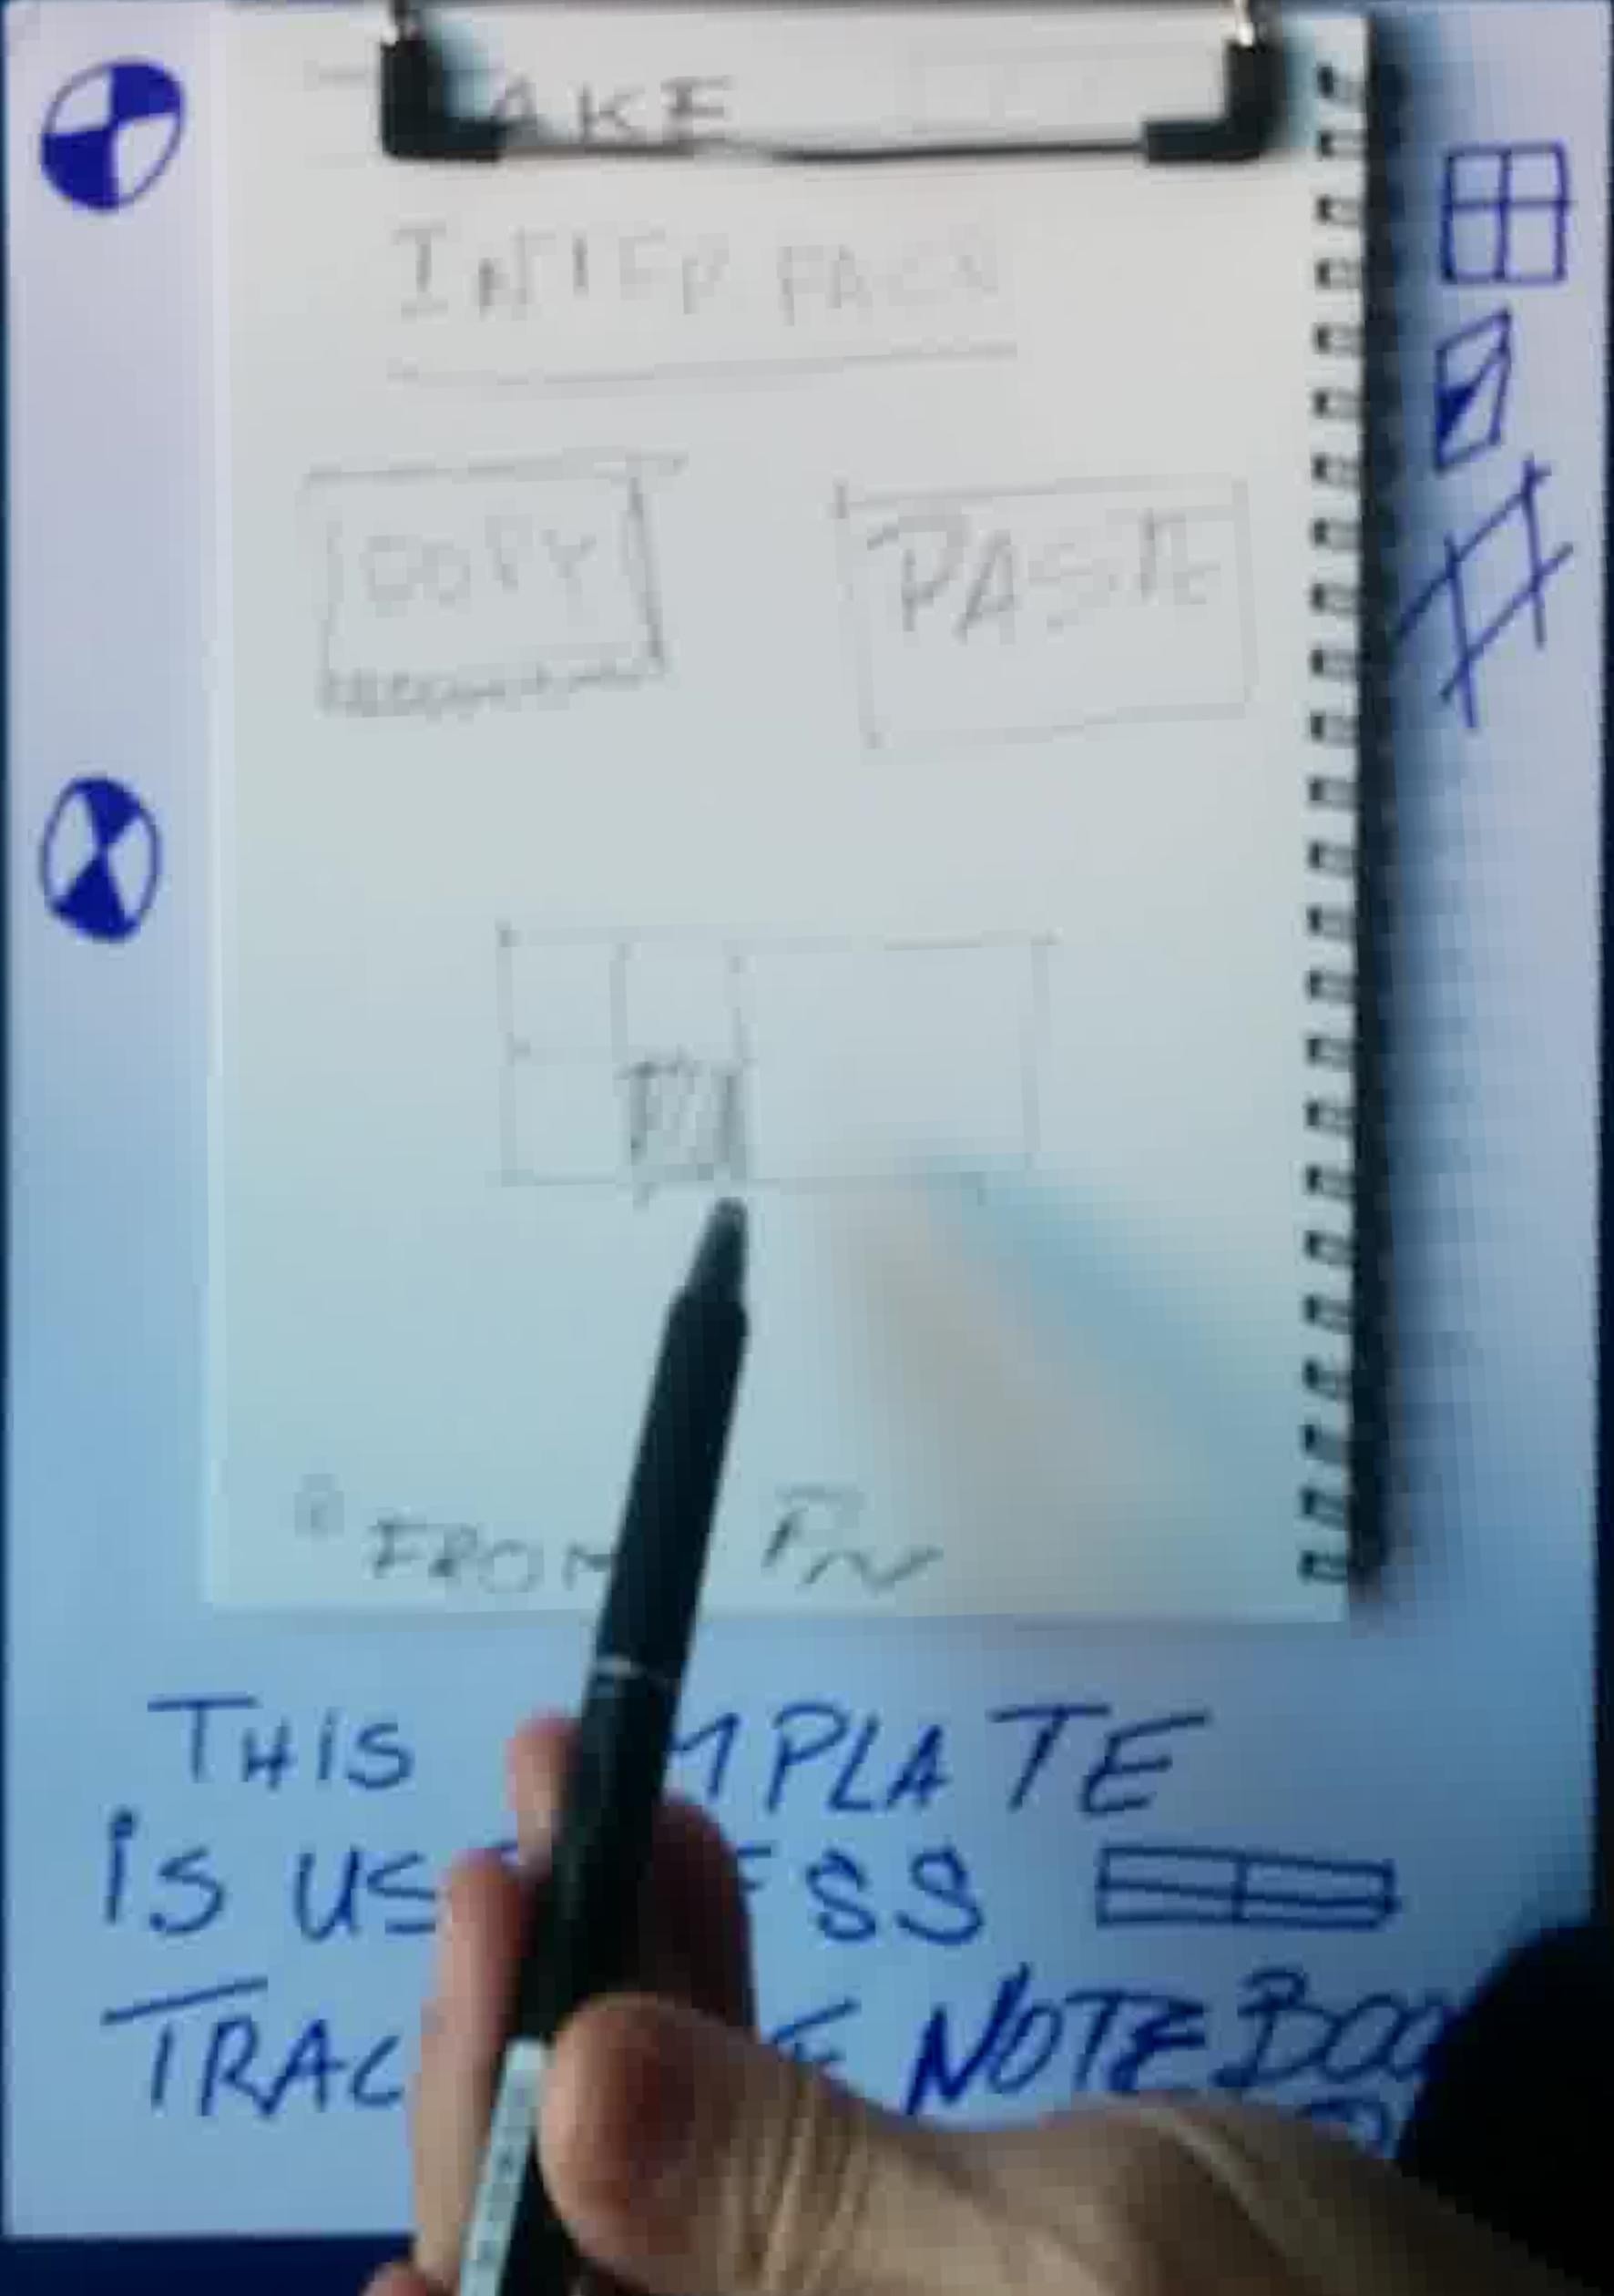 AKE
INTERFACE
COPY PASTE
FROM
THIS MPLATE
IS US ESS
TRAC E NOTEBOO